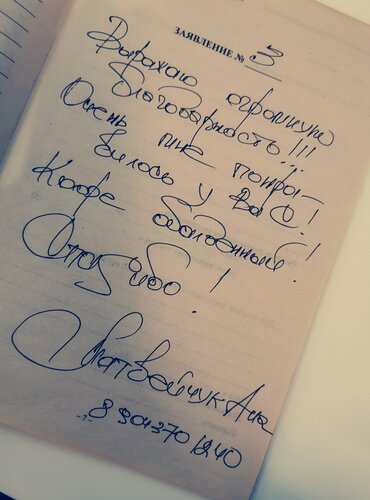 ЗАЯВЛЕНИЕ № 3
Выражаю огромную
благодарность!!!
Очень мне понра-
вилось у Вас!
Кофе обалденный!
Спасибо!
Матвейчук Анна
8 904 370 1240